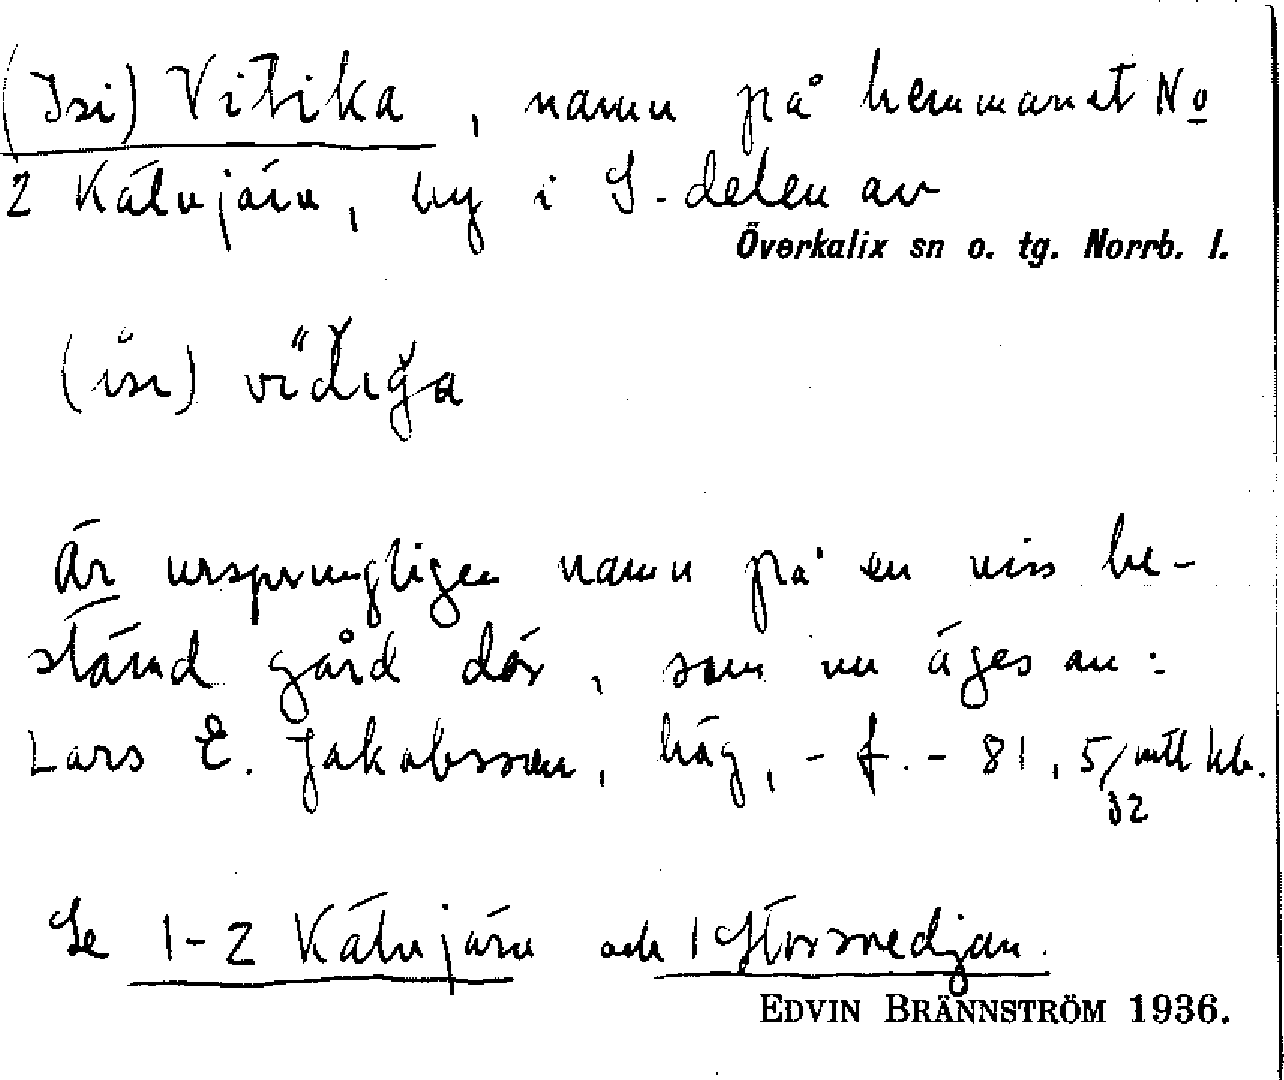 (Isi) Vitika, namn på hemmanet No
2 Kälvjärv, by i S. delen av
Överkalix sn o. tg. Norrb. l.
(isi)
Är ursprungligen namn på en viss be-
stämd gård där, som nu äges av:
Lars E. Jakobsson, häg, - f. - 81, 5/32 mtl kb.
Se 1-2 Kälvjärv och 1 Storsvedjan.
EDVIN BRÄNNSTRÖM 1936.